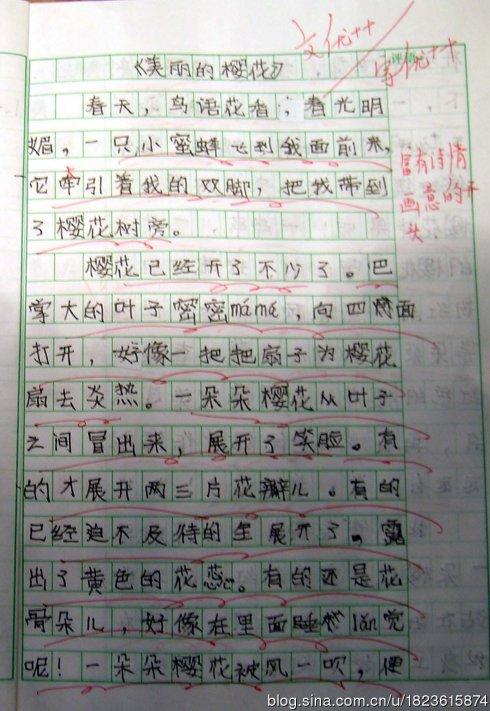 文优++
字优++
《美丽的樱花》
春天，鸟语花香，春光明
媚，一只小蜜蜂飞到我面前来，
它牵引着我的双脚，把我带到
了樱花树旁。
富有诗情
画意的开
头
樱花已经开了不少了。巴
掌大的叶子密密mámá，向四面
打开，好像一把把扇子为樱花
扇去炎热。一朵朵樱花从叶子
之间冒出来，展开了笑脸。有
的才展开两三片花瓣儿。有的
已经迫不及待的全展开了。露
出了黄色的花蕊。有的还是花
骨朵儿，好像在里面睡lǎn觉
呢！一朵朵樱花被风一吹，便
blog.sina.com.cn/u/1823615874